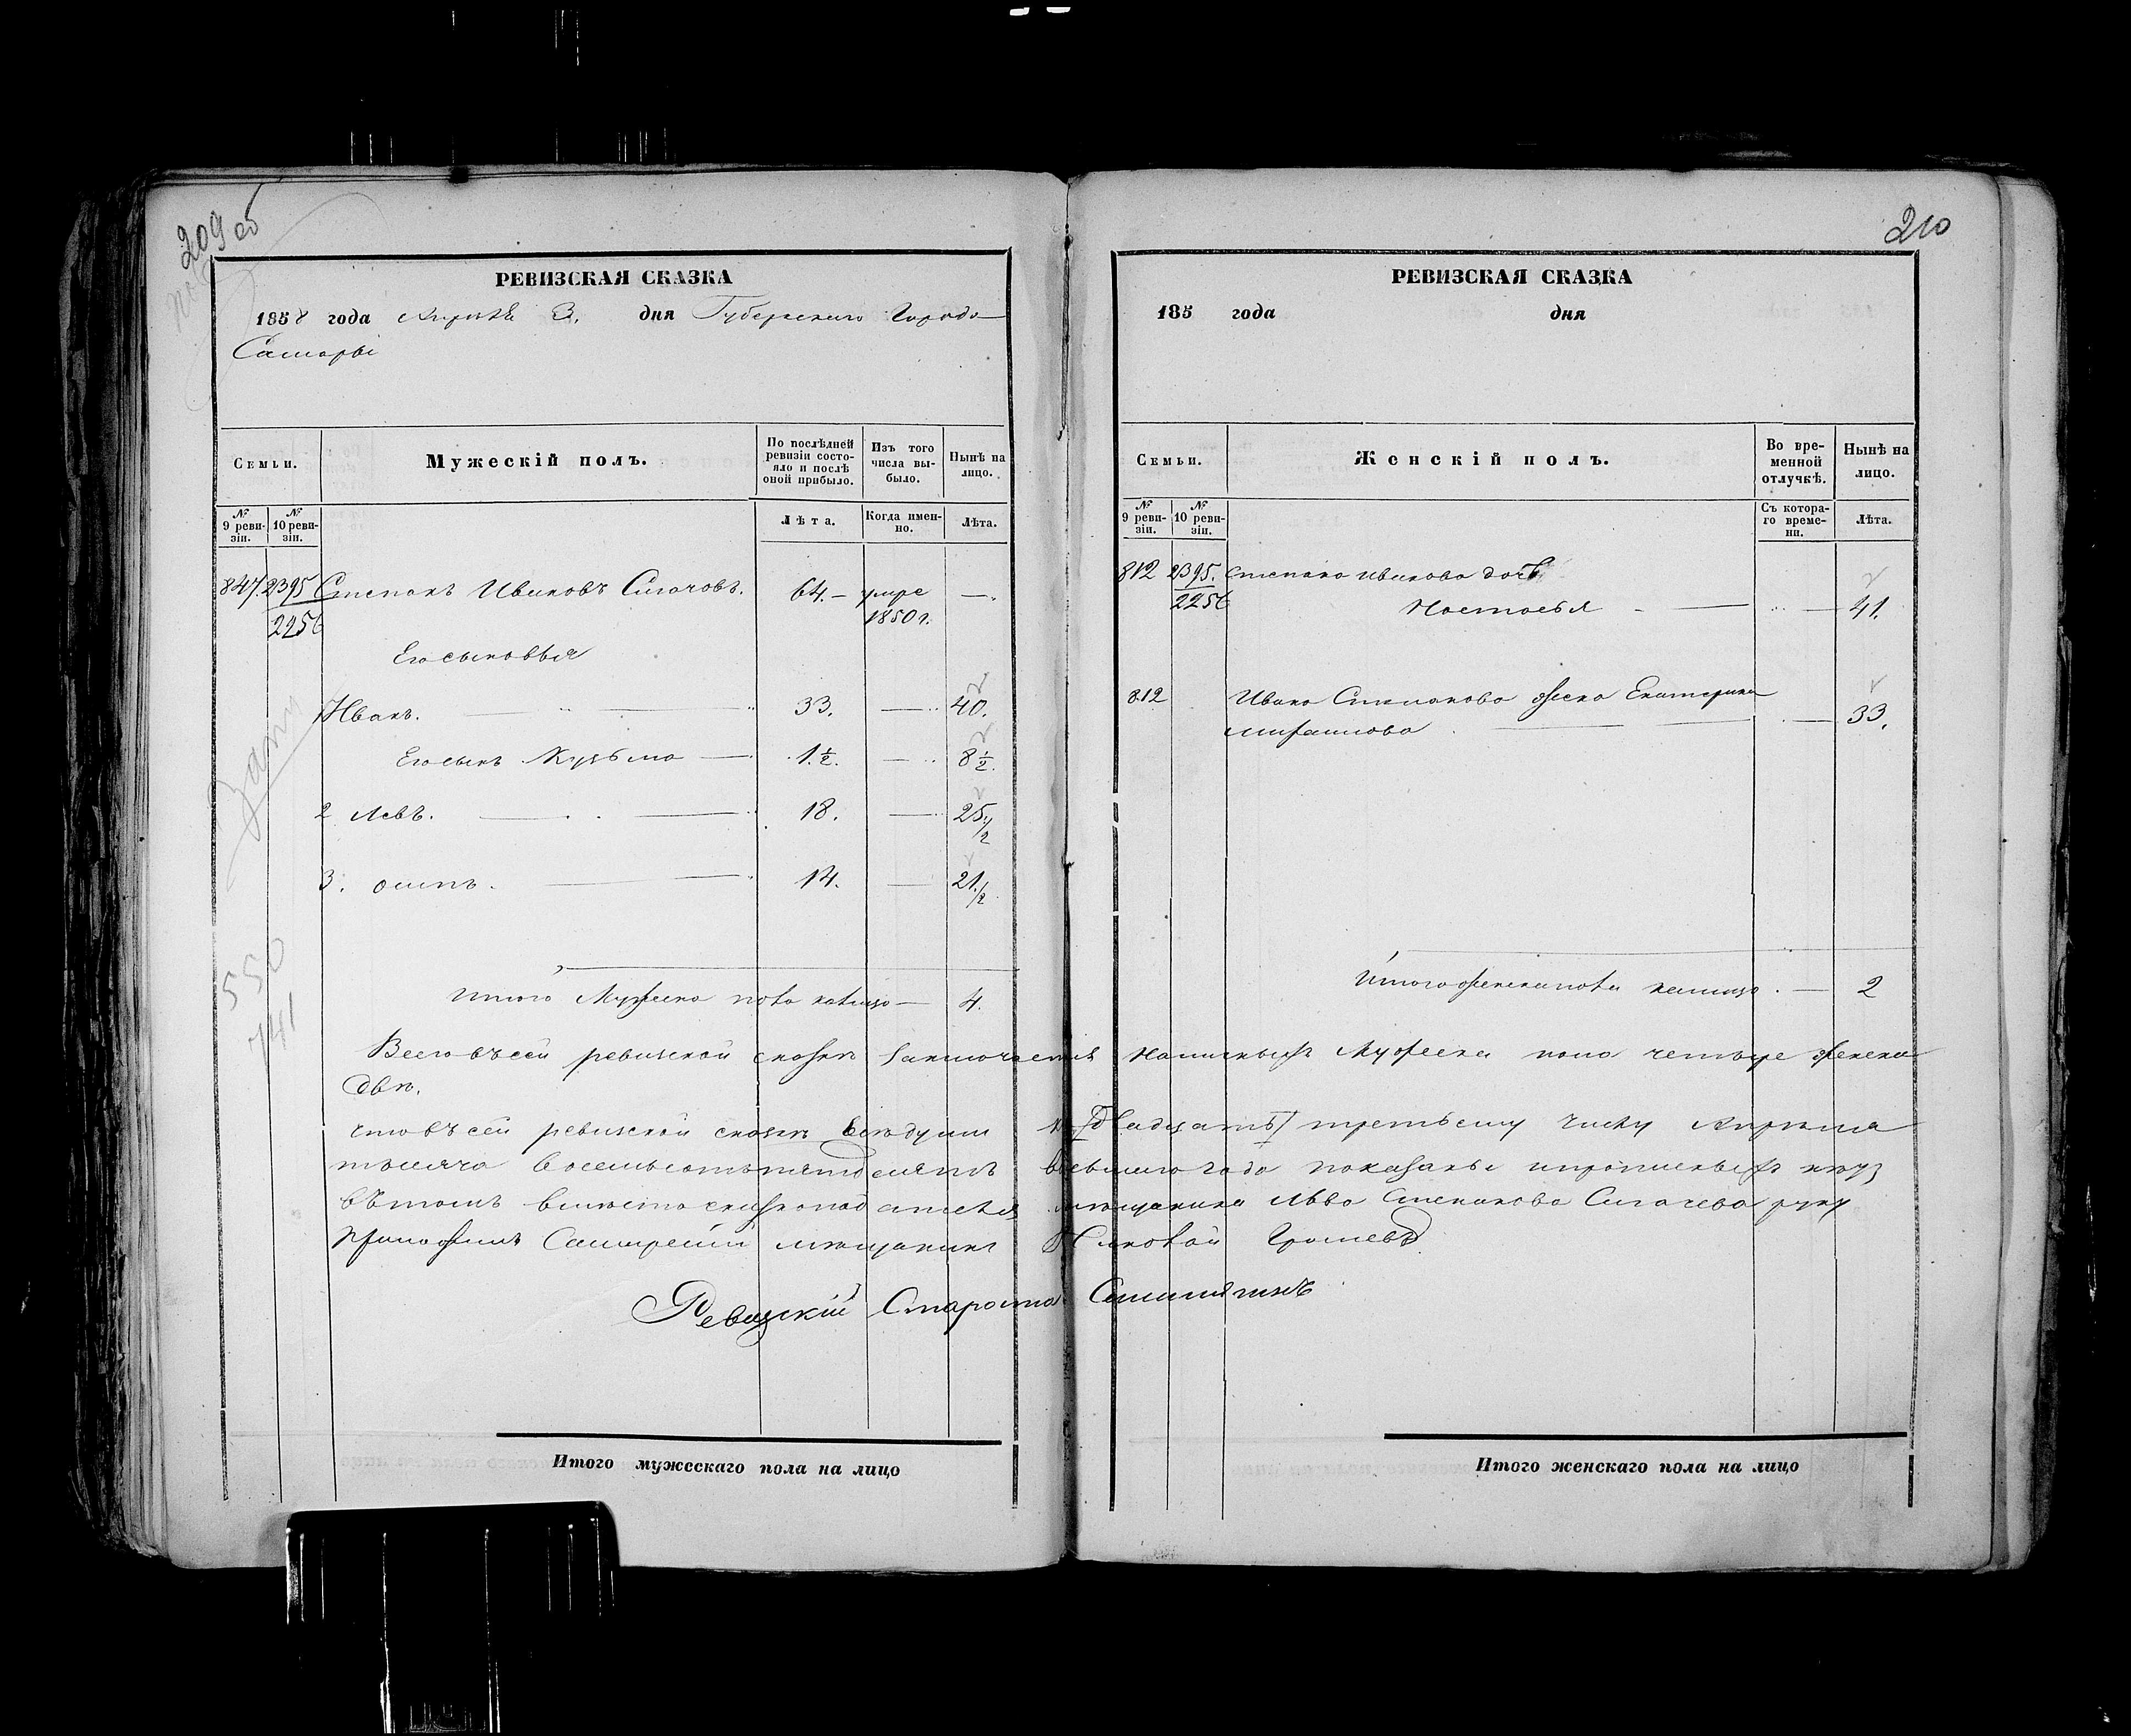 209 об
РЕВИЗСКАЯ СКАЗКА
1858 года Апреля 3. дня Губернскаго Города
Самары
Семьи.
Мужескій полъ.
По послѣдней ревизіи состояло и послѣ оной прибыло.
Изъ того числа выбыло.
Нынѣ на лицо.
№ 9 ревизіи.
№ 10 ревизіи.
Лѣта.
Когда именно.
Лѣта.
847. 2395 Степанъ Ивановъ Сигачовъ. 64. — умре —
2256 1850 г.
Его сыновья
1 Иванъ. 33. — 40.
Его сынъ Кузьма — 1 ½. — 8 ½.
2 Левъ. 18. — 25 ½
3. осипъ. 14. — 21 ½
550
741
Итого Мужеска пола налицо — 4.
210
РЕВИЗСКАЯ СКАЗКА
185 года дня
Семьи.
Женскій полъ.
Во временной отлучкѣ.
Нынѣ на лицо.
№ 9 ревизіи.
№ 10 ревизіи.
Съ котораго времени.
Лѣта.
812 2395. Степана иванова дочь
2256 Настасья — — 41.
812 Ивана Степанова жена Екатерина
— 33.
Итого женска пола налицо. — 2
Всего въ сей ревизской сказкѣ заключается наличныхъ Мужеска пола четыре женска
двѣ.
что въ сей ревизской сказкѣ всѣ души к двадцать третьему числу Апреля
тысяча восемьсотъ пятдесятъ года показаны и прописныхъ нѣту
въ томъ вместо сказкоподателя мещанина Льва Степанова Сигачева руку
приложилъ мещанинъ
Ревизскій Староста
Итого мужескаго пола на лицо
Итого женскаго пола на лицо